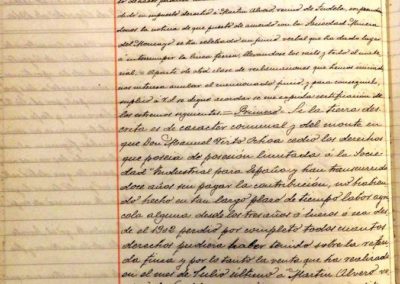 dido un supuesto derecho á Martin Alvero, vecino de Tudela, se
donos la noticia de que puesto de acuerdo con la Sociedad Minera
del Moncayo se ha celebrado un juicio verbal que ha dado lugar
á interrumpir la linea ferrea, llevandose los rails y todo el mate
rial. = Aparte de otra clase de reclamaciones que hemos iniciado
nos interesa anular el enunciado juicio y para conseguirlo
suplico á V.d. se digne acordar se me expida certificacion de
los extremos siguientes = Primero: Si la tierra des
crita es de caracter comunal y del monte en
que Don Manuel Visto Ochoa cedió los derechos
que poseia de posesion limitada á la Socie
dad "Industrial para Española y han transcurrido
doce años sin pagar la contribucion, no habien
do hecho en tan largo plazo de tiempo labor agri
cola alguna desde los tres años ó lueros ó sea des
de el 1902 perdió por completo todos cuantos
derechos pudiera haber tenido sobre la referi
da finca y por lo tanto la venta que ha realizado
en el mes de Julio último á Martin Alvero ve